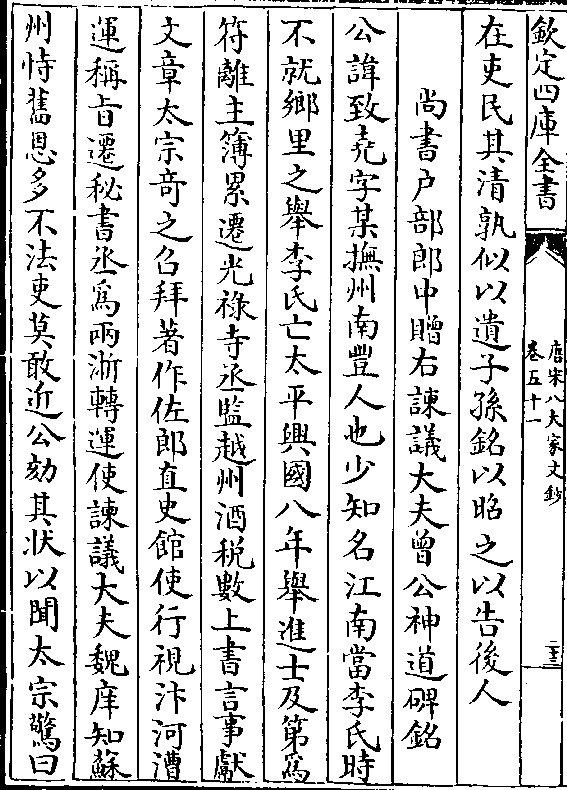 欽定四庫全書
唐宋八大家文鈔
卷五十一
二十三
在吏民其清孰似以遺子孫銘以昭之以告後人
尚書户部郎中贈右諫議大夫曾公神道碑銘
公諱致堯字某撫州南豐人也少知名江南當李氏時
不就鄉里之舉李氏亡太平興國八年舉進士及第為
符離主簿累遷光祿寺丞監越州酒税數上書言事獻
文章太宗竒之召拜著作佐郎直史館使行視汴河漕
運稱旨遷秘書丞為兩浙轉運使諫議大夫魏庠知蘇
州恃舊恩多不法吏莫敢近公劾其状以聞太宗驚曰